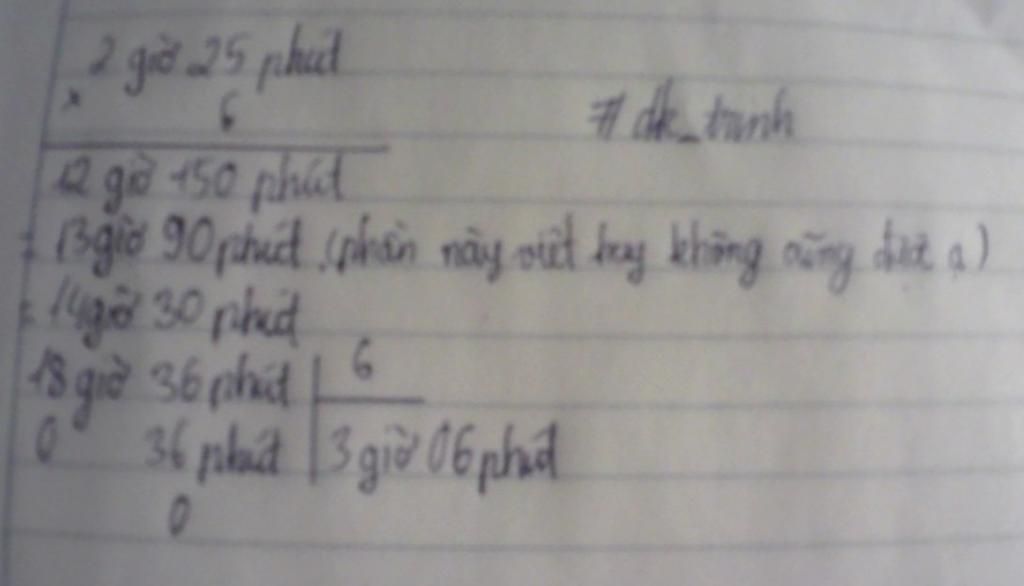 2 giờ 25 phút
×
6
#dk_trinh
12 giờ 150 phút
= 13 giờ 90 phút. (phần này viết hay không cũng được ạ)
= 14 giờ 30 phút
18 giờ 36 phút | 6
0 36 phút | 3 giờ 06 phút
0